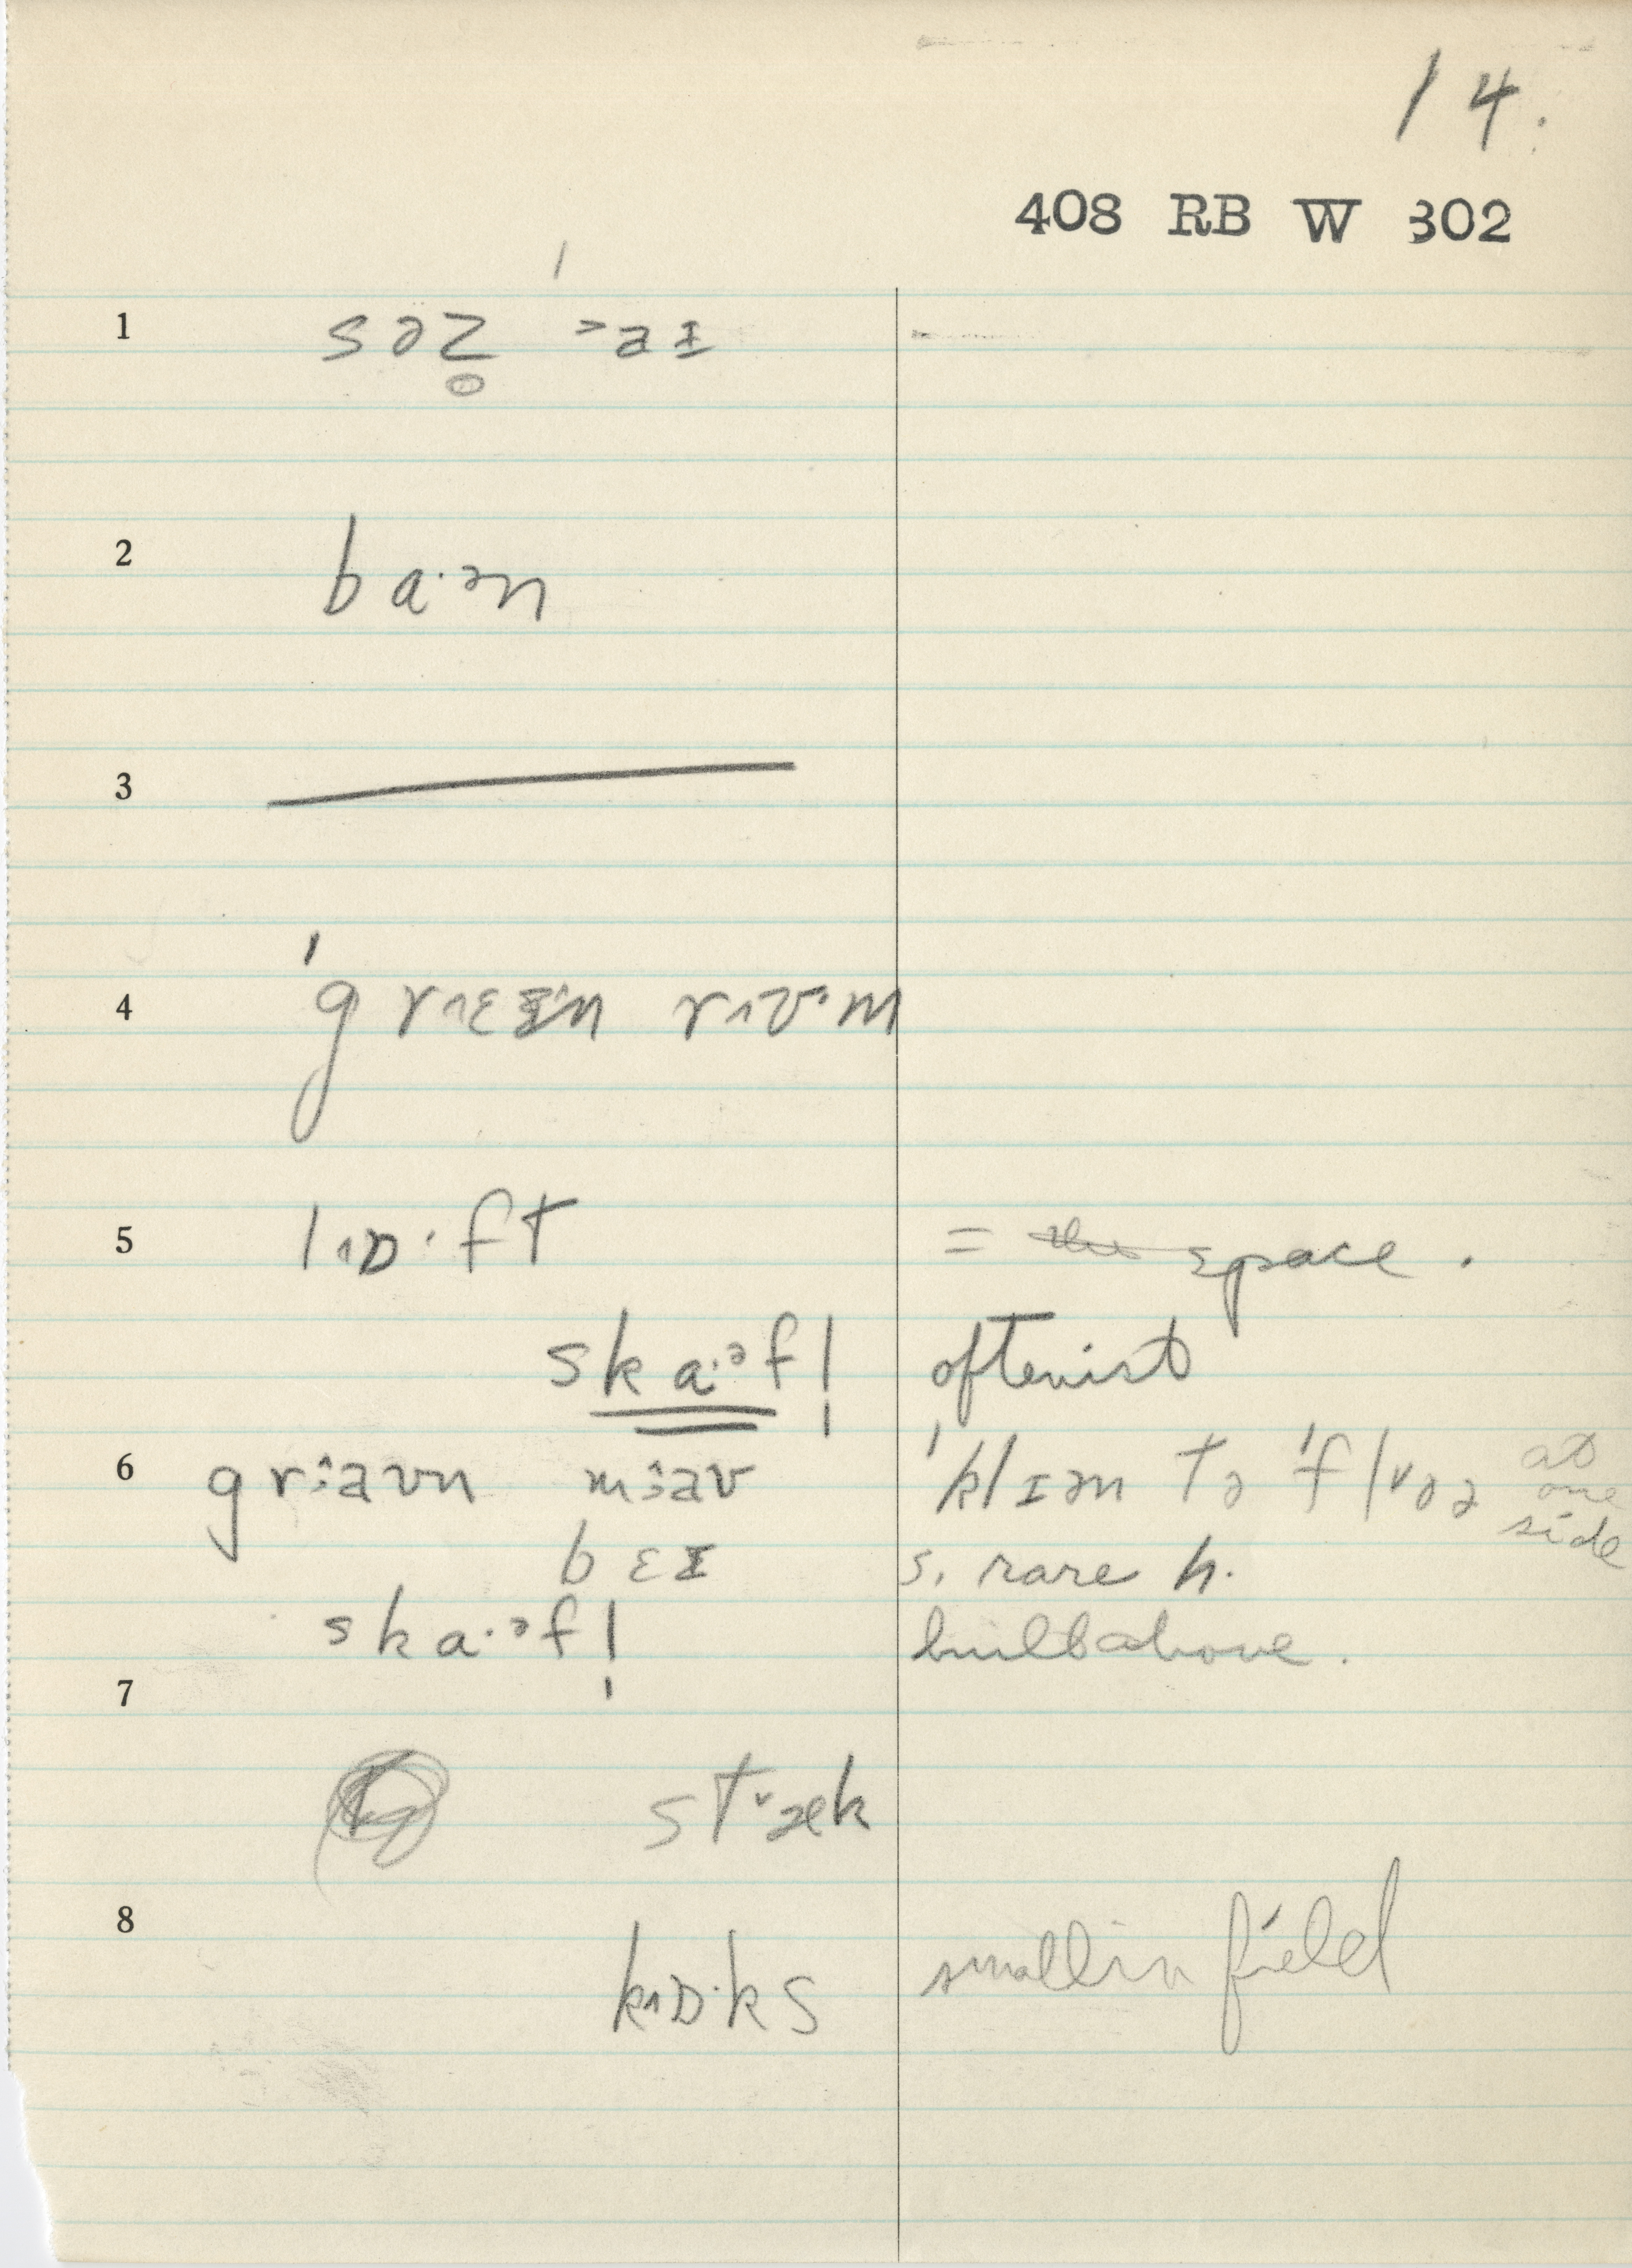 14.
408 RB W 302
1 səz̥ ˃aɪ
2 ba·ən
3
4 ˈgr˄ɛɪ·n r˄ʊ·m
5 l˄ɒ·ft = the space.
ska·əf! oftenist
6 gr:aʊn m:aʊ ˈklɪən tə ˈfl˅oə at one side
bɛɪ s. rare h.
ska·əf! built above.
7
st˅æk
8
k˄ɒ·ks small in field